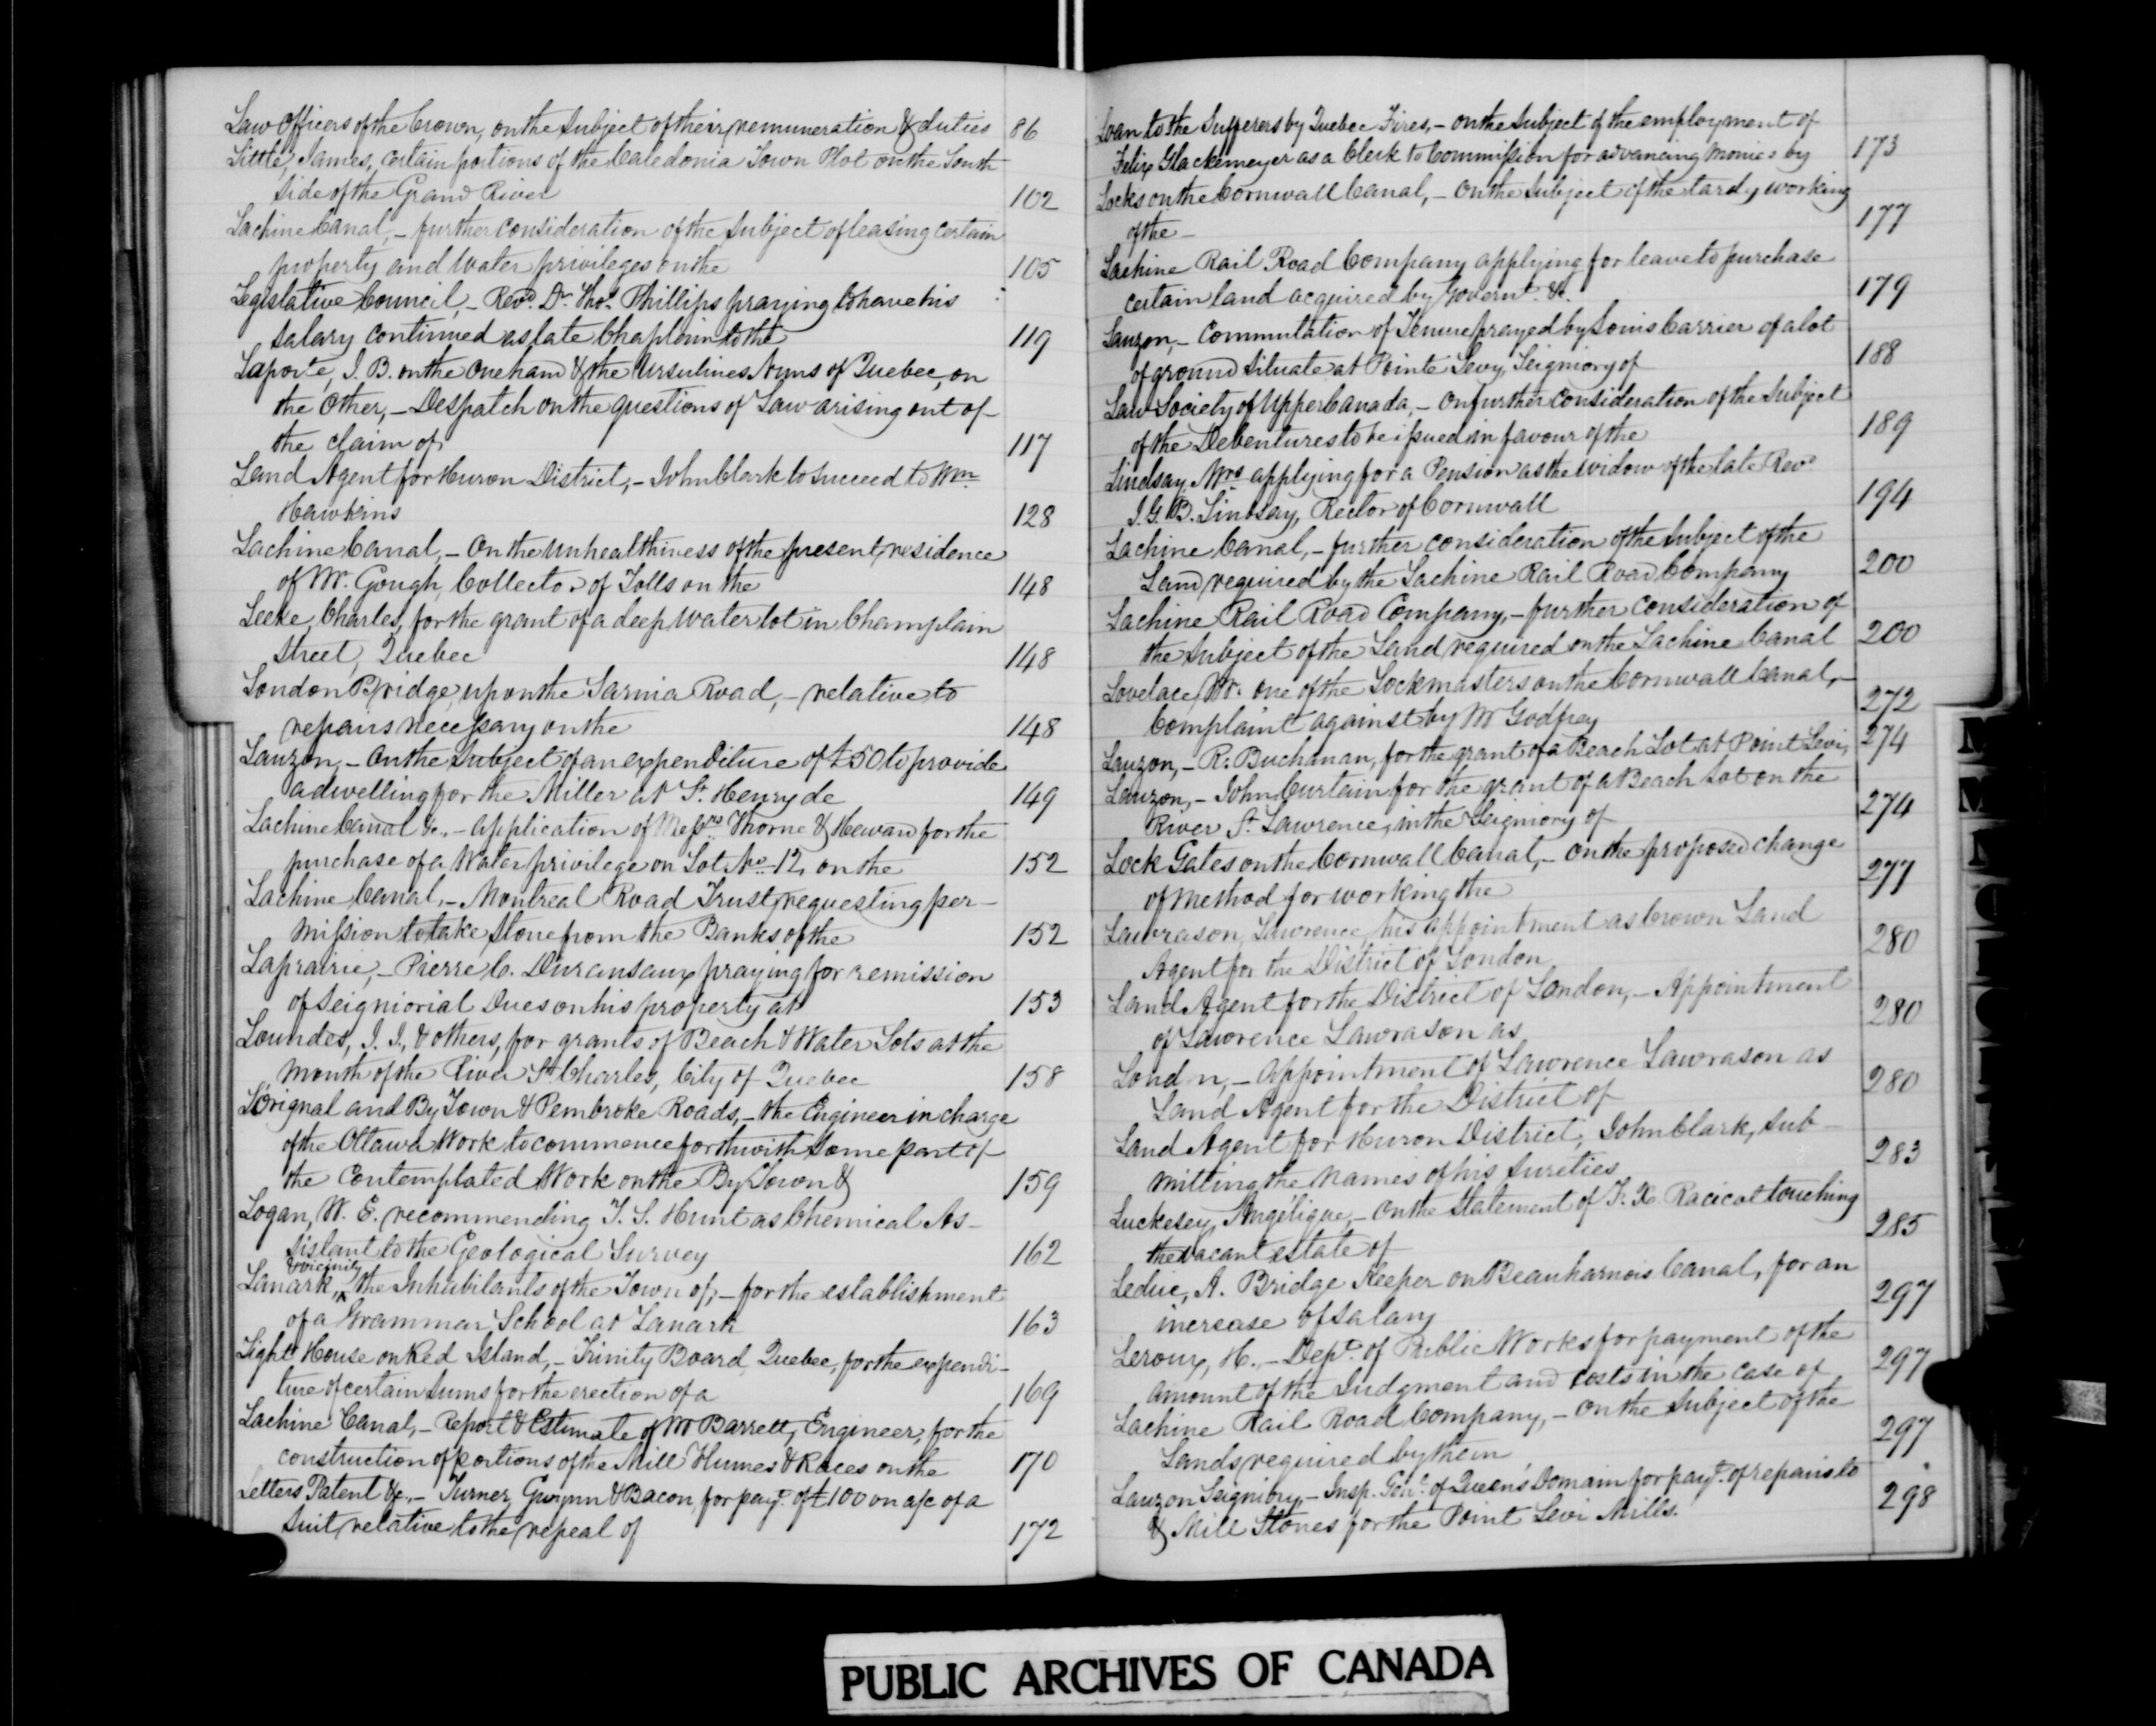 Law Officers of the Crown, on the subject of their remuneration & duties 86
Little, James, certain portions of the Caledonia Town Plot on the South
side of the Grand River 102
Lachine Canal, - further consideration of the subject of leasing certain
property and Water privileges on the 105
Legislative Council, - Revd. Dr. Thos. Phillips praying to have his
salary continued as late Chaplain to the 119
Laporte, J. B. on the one hand & the Ursulines Nuns of Quebec, on
the other, - Despatch on the questions of Law arising out of
the claim of 117
Land Agent for Huron District, - John Clark to succeed to Wm
Hawkins 128
Lachine Canal, - On the unhealthiness of the present residence
of Mr. Gough, Collector of Tolls on the 148
Leeke, Charles, for the grant of a deep water lot in Champlain
Street, Quebec 148
London Bridge, upon the Sarnia Road, - relative to
repairs necessary on the 148
Lauzon, - On the subject of an expenditure of £50 to provide
a dwelling for the Miller at St. Henry de 149
Lachine Canal &c., - application of Messrs Thorne & Hewan for the
purchase of a Water privilege on Lot No. 12, on the 152
Lachine Canal, - Montreal Road Trust, requesting per-
mission to take stone from the Banks of the 152
Laprairie, - Pierre C. Duransaux praying for remission
of Seigniorial Dues on his property at 153
Lowndes, J. J., & others, for grants of Beach & Water Lots at the
mouth of the River St. Charles, City of Quebec 158
L'Orignal and By Town & Pembroke Roads, - the Engineer in charge
of the Ottawa Work to commence forthwith some part of
the contemplated Work on the By Town & 159
Logan, W. E. recommending T. S. Hunt as Chemical As-
sistant to the Geological Survey 162
& vicinity
Lanark, the Inhabitants of the Town of, - for the establishment
of a Grammar School at Lanark 163
Light House on Red Island, - Trinity Board, Quebec, for the expendi-
ture of certain sums for the erection of a 169
Lachine Canal, - Report & Estimate of Mr Barrett, Engineer, for the
construction of portions of the Mill Flumes & Races on the 170
Letters Patent &c, - Turner, Gwynn & Bacon, for payt. of £100 on a/c of a
suit relative to the repeal of 172
Loan to the Sufferers by Quebec Fires, - on the subject of the employment of
Felix Glackemeyer as a Clerk to Commission for advancing monies by 173
Locks on the Cornwall Canal, - On the subject of the tardy working
of the - 177
Lachine Rail Road Company applying for leave to purchase
certain land acquired by Governt. &c. 179
Lauzon, - Commutation of Tenure prayed by Louis Carrier of a lot
of ground situate at Pointe Levy, Seigniory of 188
Law Society of Upper Canada, - On further consideration of the subject
of the Debentures to be issued in favour of the 189
Lindsay, Mrs applying for a Pension as the widow of the late Revd
J. G. B. Lindsay, Rector of Cornwall 194
Lachine Canal, - further consideration of the subject of the
Land required by the Lachine Rail Road Company 200
Lachine Rail Road Company, - further consideration of
the subject of the Land required on the Lachine Canal 200
Lovelace, Mr. one of the Lockmasters on the Cornwall Canal, -
Complaint against by Mr Godfrey 272
Lauzon, - R. Buchanan, for the grant of a Beach Lot at Point Levi, 274
Lauzon, - John Curtain for the grant of a Beach Lot on the
River St. Lawrence, in the Seigniory of 274
Lock Gates on the Cornwall Canal, - On the proposed change
of method for working the 277
Lawrason, Lawrence, his appointment as Crown Land
Agent for the District of London 280
Land Agent for the District of London, - Appointment
of Lawrence Lawrason as 280
Lond n, - Appointment of Lawrence Lawrason as
Land Agent for the District of 280
Land Agent for Huron District, John Clark, sub-
mitting the names of his sureties 283
Luckesey, Angélique, - On the statement of F. X. Racicot touching
the vacant estate of 285
Leduc, A. Bridge Keeper on Beauharnois Canal, for an
increase of salary 297
Leroux, H., - Dept. of Public Works for payment of the
amount of the Judgment and costs in the case of 297
Lachine Rail Road Company, - On the subject of the
Lands required by them 297
Lauzon Seigniory, - Insp. Genl. of Queen's Domain for payt. of repairs to
& Mill Stones for the Point Levi Mills. 298
PUBLIC ARCHIVES OF CANADA